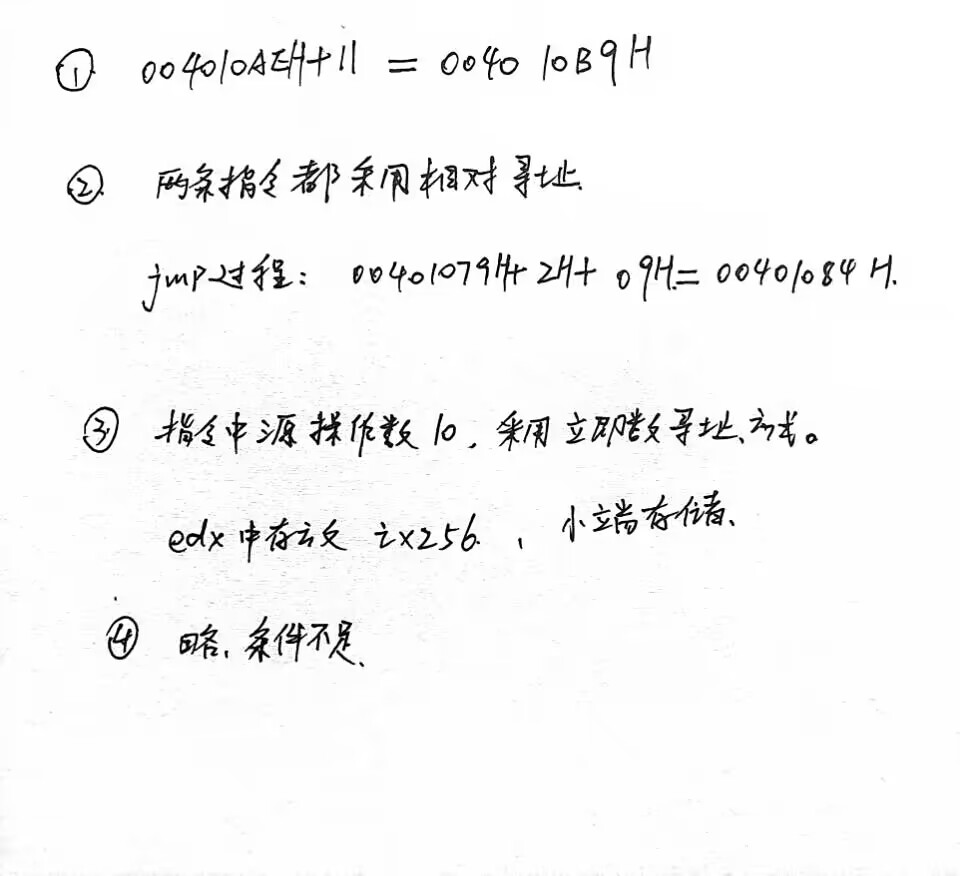 ① 004010AEH+11 = 004010B9H
② 两条指令都采用相对寻址.
jmp过程: 00401079H+2H+09H=00401084H.
③ 指令中源操作数10, 采用立即数寻址方式。
edx中存 i×256. , 小端存储.
④ 略, 条件不足.